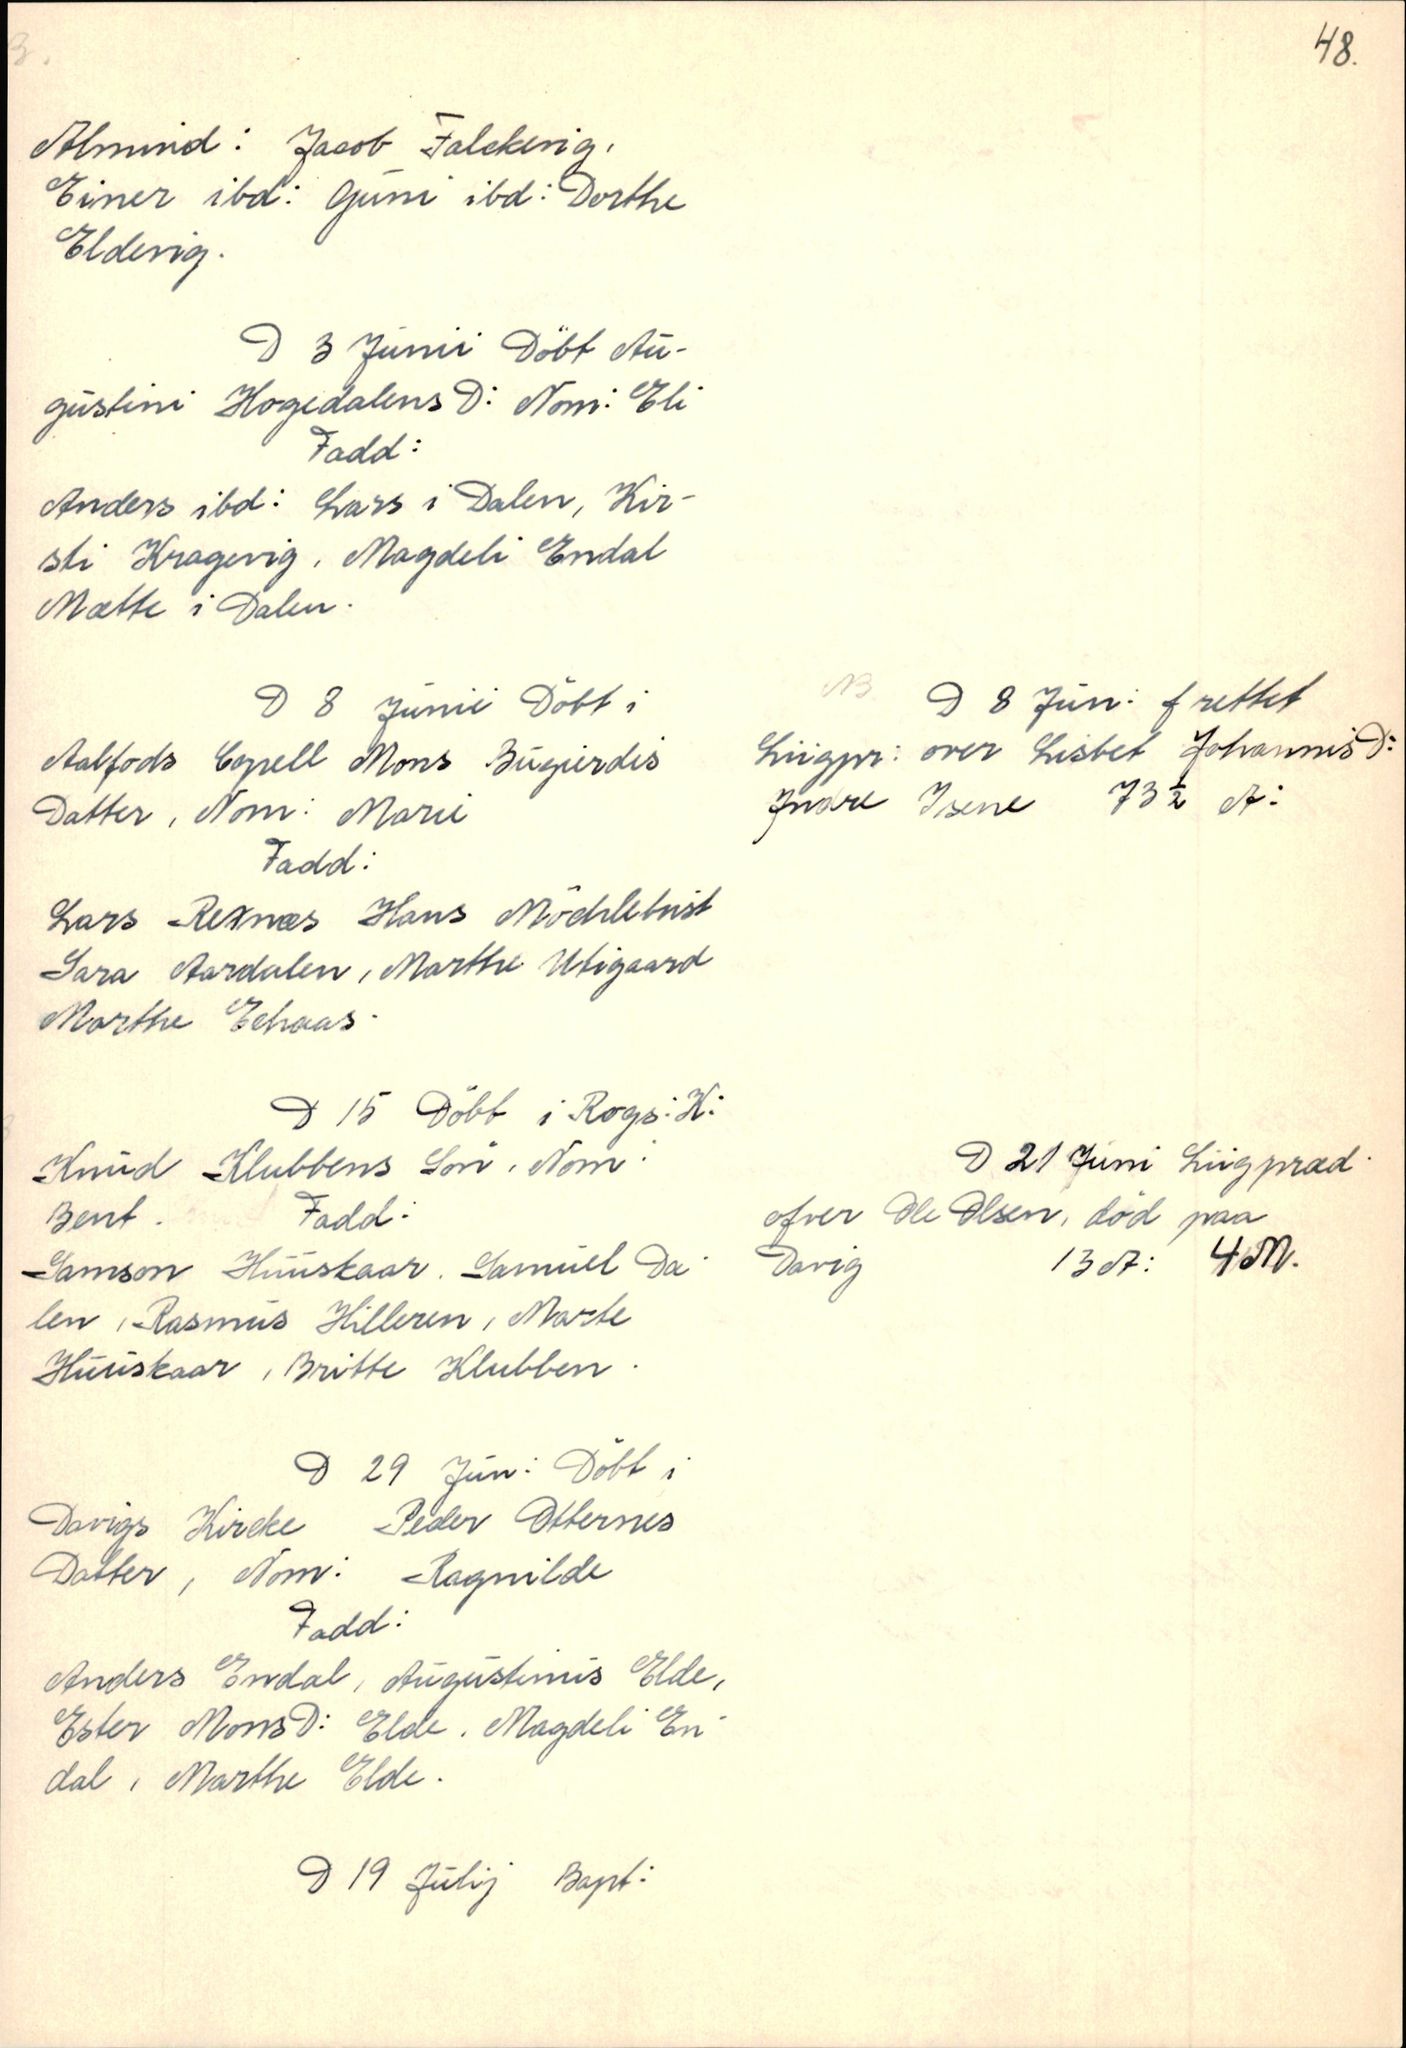 48.
Almind: Jacob Falckevig,
Einer ibd: Guni ibd: Dorthe
Eldevig.
D 3 Junii Döbt Au-
gustini Hogedalens D: Nom: Eli
Fadd:
Anders ibd: Lars i Dalen, Kir-
sti Kragevig, Magdeli Endal
Mætte i Dalen.
D 8 Junii Döbt i
Aalfods Capell Mons Bugierdis
Datter, Nom: Marie
Fadd:
Lars Rexnæs Hans Möchlebust
Sara Aardalen, Marthe Utigaard
Marthe Echaas.
D 15 Döbt i Rogs: K:
Knud Klubbens Sön, Nom:
Bent. Fadd:
Samson Huuskaar. Samuel Da-
len, Rasmus Hilleren, Marte
Huuskaar, Britte Klubben.
D 29 Jun: Döbt i
Davigs Kircke Peder Otternes
Datter, Nom: Ragnilde
Fadd:
Anders Endal, Augustinus Elde,
Ester MonsD: Elde. Magdeli En-
dal, Marthe Elde.
D 19 Julij Bapt:
NB D 8 Jun: frettet
Liigpr: over Lisbet JohannisD:
Indre Isene 73½ A:
D 21 Juni Liigpræd.
ofver Ole Olsen, död paa
Davig 13 A: 4 M.